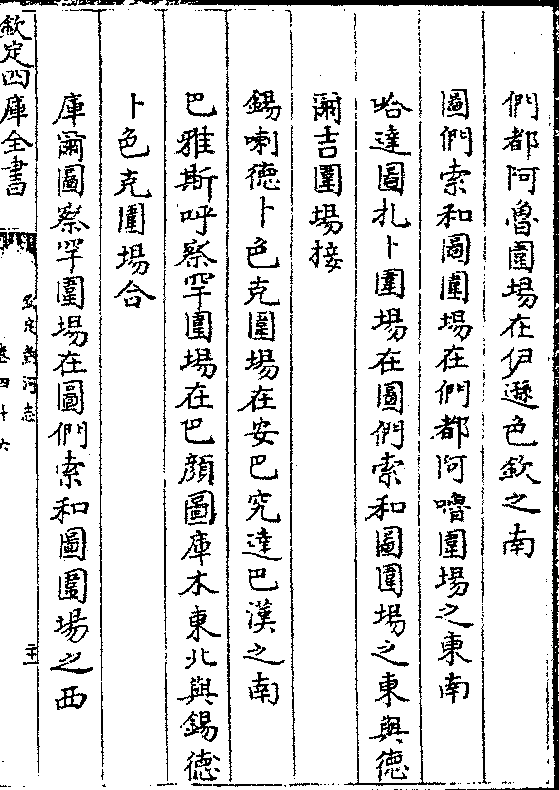 們都阿魯圍場在伊遜色欽之南
圖們索和圖圍場在們都阿嚕圍場之東南
哈達圖扎卜圍場在圖們索和圖圍場之東與德
爾吉圍場接
錫喇德卜色克圍場在安巴究達巴漢之南
巴雅斯呼察罕圍場在巴顔圖庫木東北與錫德
卜色克圍場合
庫爾圖察罕圍場在圖們索和圖圍場之西
欽定四庫全書
欽定熱河志
卷四十六